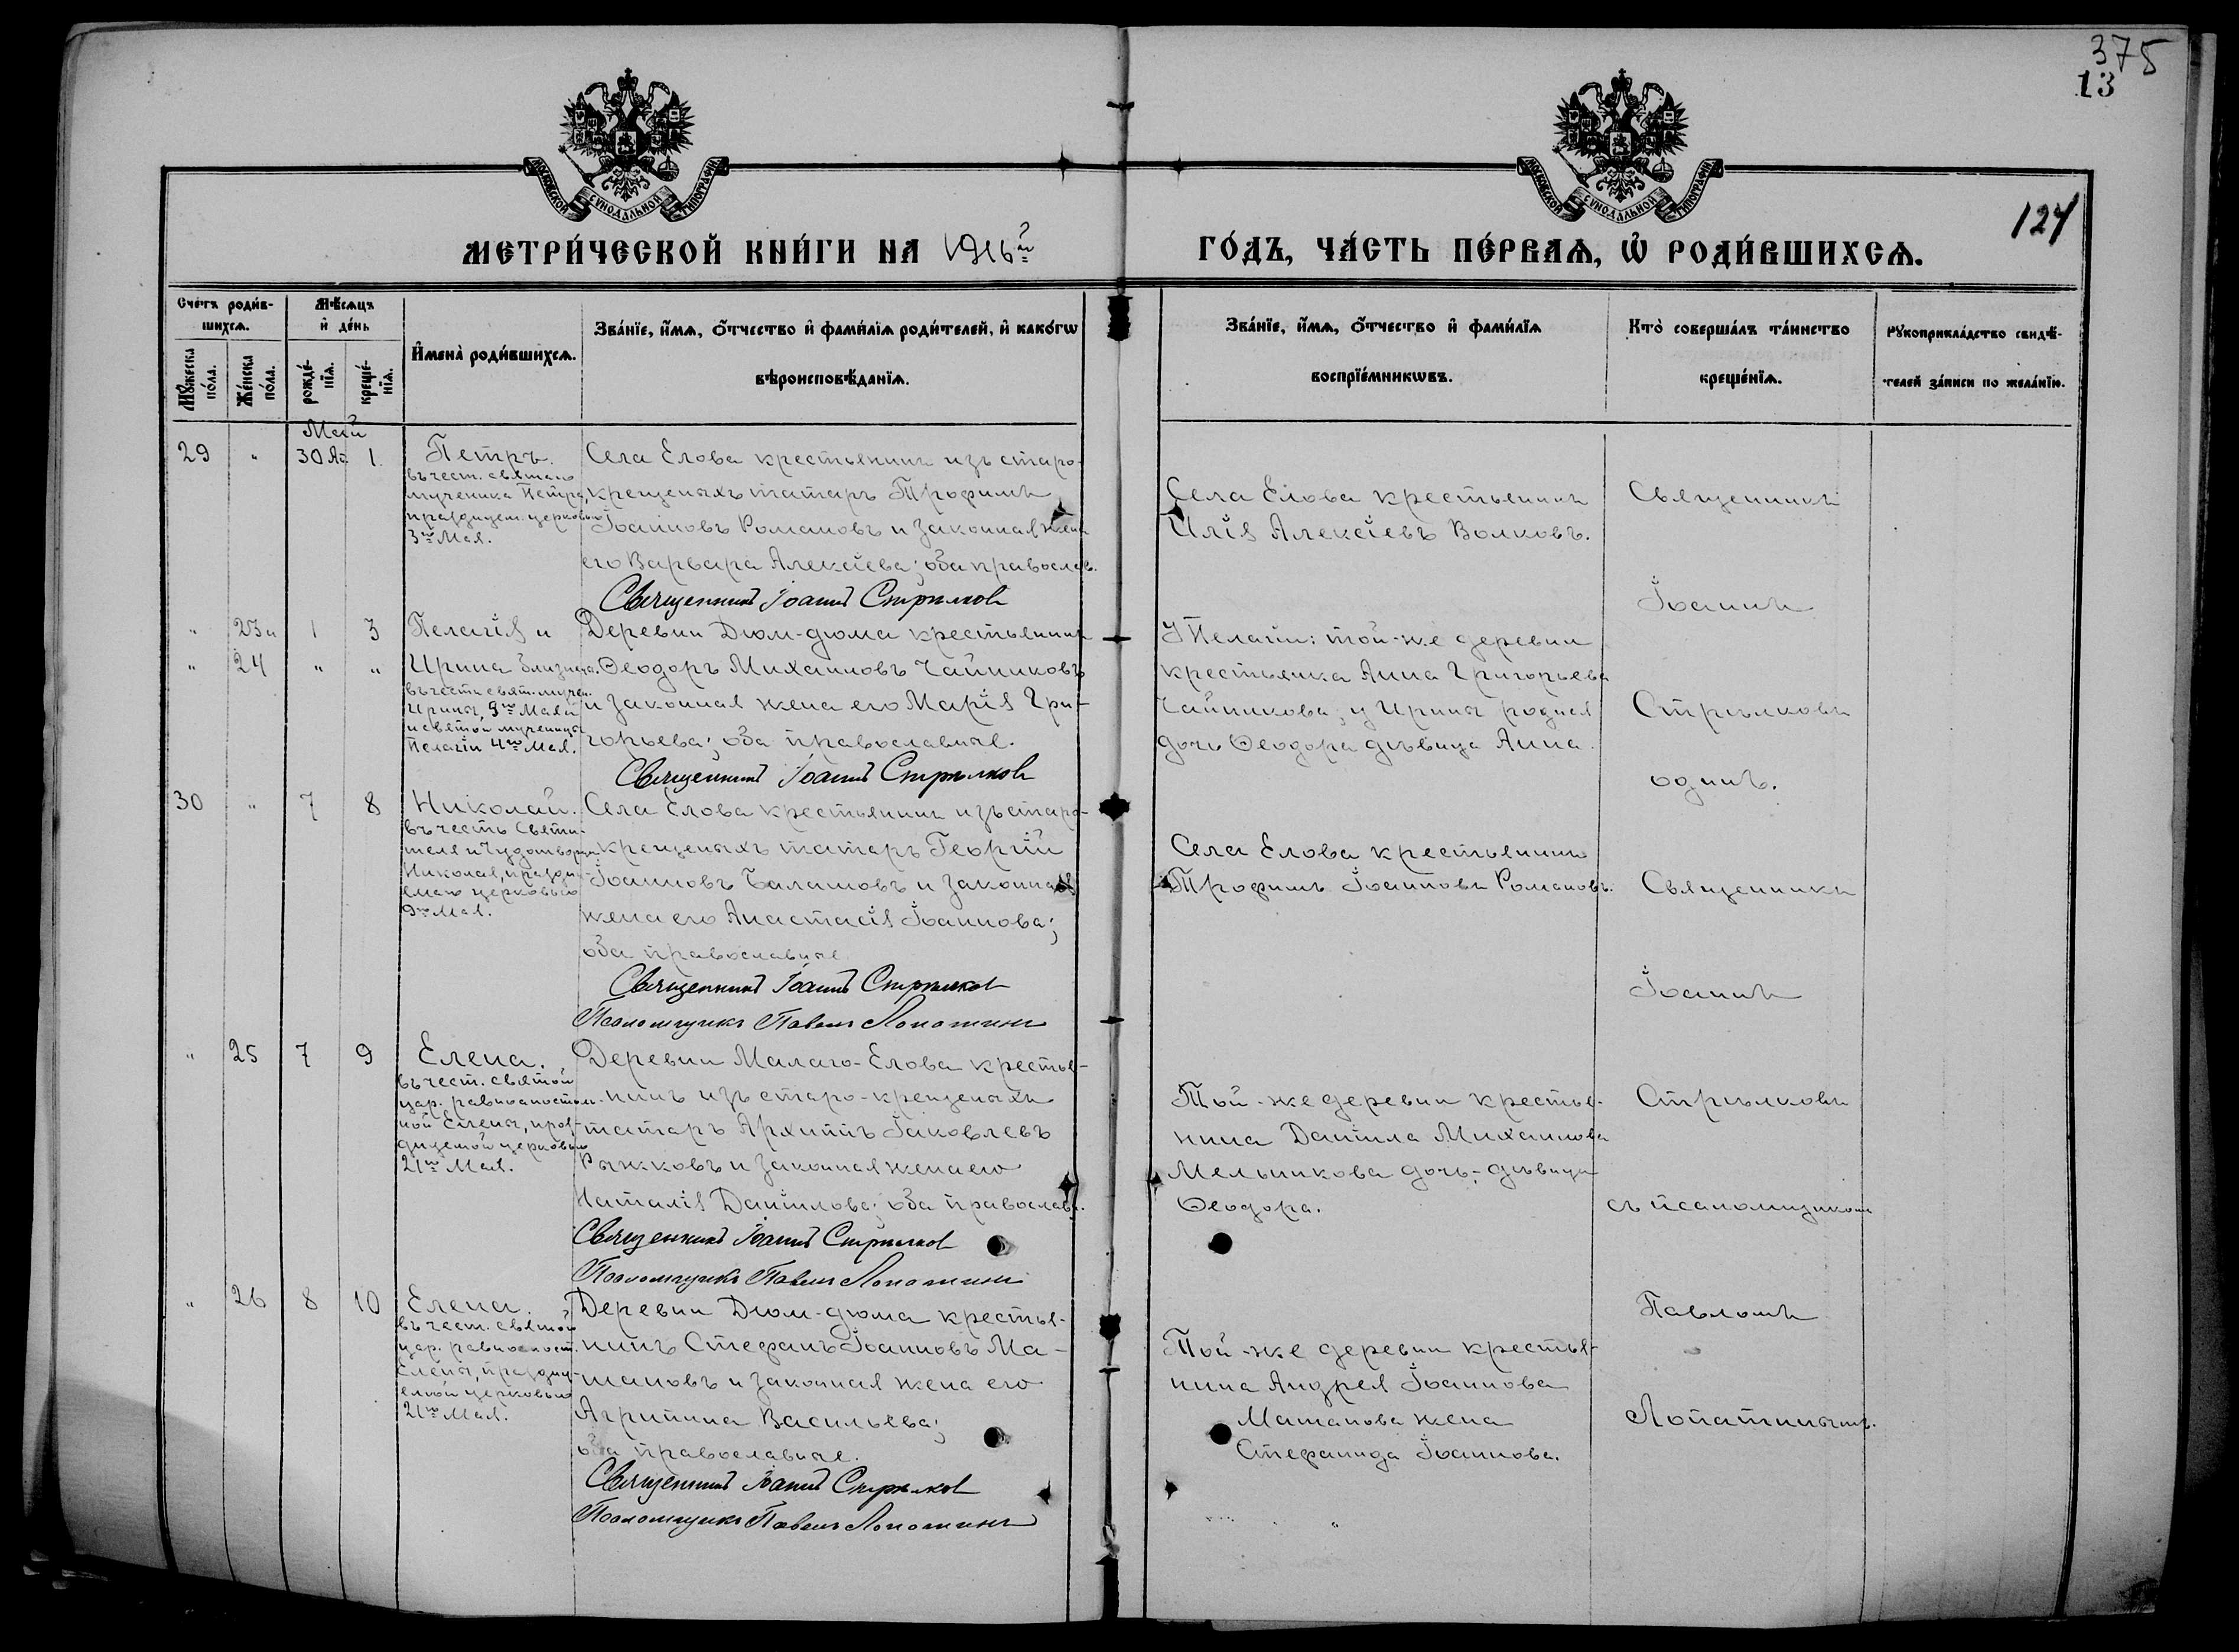 375
13
124
МОСКОВСКОЙ СѴНОДАЛЬНОЙ ТИПОГРАФІИ
МОСКОВСКОЙ СѴНОДАЛЬНОЙ ТИПОГРАФІИ
МЕТРИ́ЧЕСКОЙ КНИ́ГИ НА 1916й
ГО́ДЪ, ЧА́СТЬ ПЕ́РВАѦ, Ѽ РОДИ́ВШИХСѦ.
Сче́тъ роди́в-
шихсѧ.
Мꙋ́жеска по́ла.
Же́нска по́ла.
Мѣ́сѧцъ
и҆ де́нь
рожде́-
нїѧ.
креще́-
нїѧ.
И҆мена̀ роди́вшихсѧ.
Зва́нїе, и҆́мѧ, ѻ҆́тчество и҆ фами́лїѧ роди́телей, и҆ како́гѡ
вѣроисповѣ́данїѧ.
Зва́нїе, и҆́мѧ, ѻ҆́тчество и҆ фами́лїѧ
воспрїе́мникѡвъ.
Кто̀ соверша́лъ та́инство
креще́нїѧ.
Рꙋкоприкла́дство свидѣ́-
телей за́писи по жела́нїю.
Май
29 " 30 Ап. 1
Петръ.
въ чест. святаго
мученика Петра,
празднуем. церковью
3го Мая.
Села Елова крестьянинъ изъ старо-
крещеныхъ татаръ Трофимъ
Іоанновъ Романовъ и законная жена
его Варвара Алексіева; оба православ.
Священникъ Іоаннъ Стрѣлковъ
Села Елова крестьянинъ
Илія Алексіевъ Волковъ.
Священникъ
Іоаннъ
Стрѣлковъ
одинъ.
" 23 и 1 3
" 24 " "
Пелагія и
Ирина близнец.
въ честь свят. мучен.
Ирины, 5го Мая и
и святой мученицы
Пелагіи 4го Мая.
Деревни Дюм-дюма крестьянинъ
Ѳеодоръ Михаиловъ Чайниковъ
и законная жена его Марія Гри-
горьева; оба православные.
Священникъ Іоаннъ Стрѣлковъ
У Пелагіи: той-же деревни
крестьянка Анна Григорьева
Чайникова; у Ирины родная
дочь Ѳеодора дѣвица Анна.
30 " 7 8
Николай.
въ честь Святи-
теля и Чудотворца
Николая, праздну-
емаго церковью
9го Мая.
Села Елова крестьянинъ изъ старо-
крещеныхъ татаръ Георгій
Іоанновъ Балашовъ и законная
жена его Анастасія Іоаннова;
оба православные
Священникъ Іоаннъ Стрѣлковъ
Псаломщикъ Павелъ Лопатинъ
Села Елова крестьянинъ
Трофимъ Іоанновъ Романовъ.
Священникъ
Іоаннъ
Стрѣлковъ
съ псаломщикомъ
Павломъ
Лопатинымъ.
" 25 7 9
Елена.
въ чест. святой
цар. равноапостол-
ной Елены, праз-
днуемой церковью
21го Мая.
Деревни Малаго-Елова крестья-
нинъ изъ старо-крещеныхъ
татаръ Архиппъ Іаковлевъ
Рыжковъ и законная жена его
Наталія Даніилова; оба православ.
Священникъ Іоаннъ Стрѣлковъ
Псаломщикъ Павелъ Лопатинъ
Той-же деревни крестья-
нина Даніила Михаилова
Мельникова дочь-дѣвица
Ѳеодора.
" 26 8 10
Елена.
въ чест. святой
цар. равноапост.
Елены, праздну-
емой церковью
21го Мая.
Деревни Дюм-дюма крестья-
нинъ Стефанъ Іоанновъ Ма-
шановъ и законная жена его
Агрипина Васильева;
оба православные.
Священникъ Іоаннъ Стрѣлковъ
Псаломщикъ Павелъ Лопатинъ
Той-же деревни крестья-
нина Андрея Іоаннова
Машанова жена
Стефанида Іоаннова.